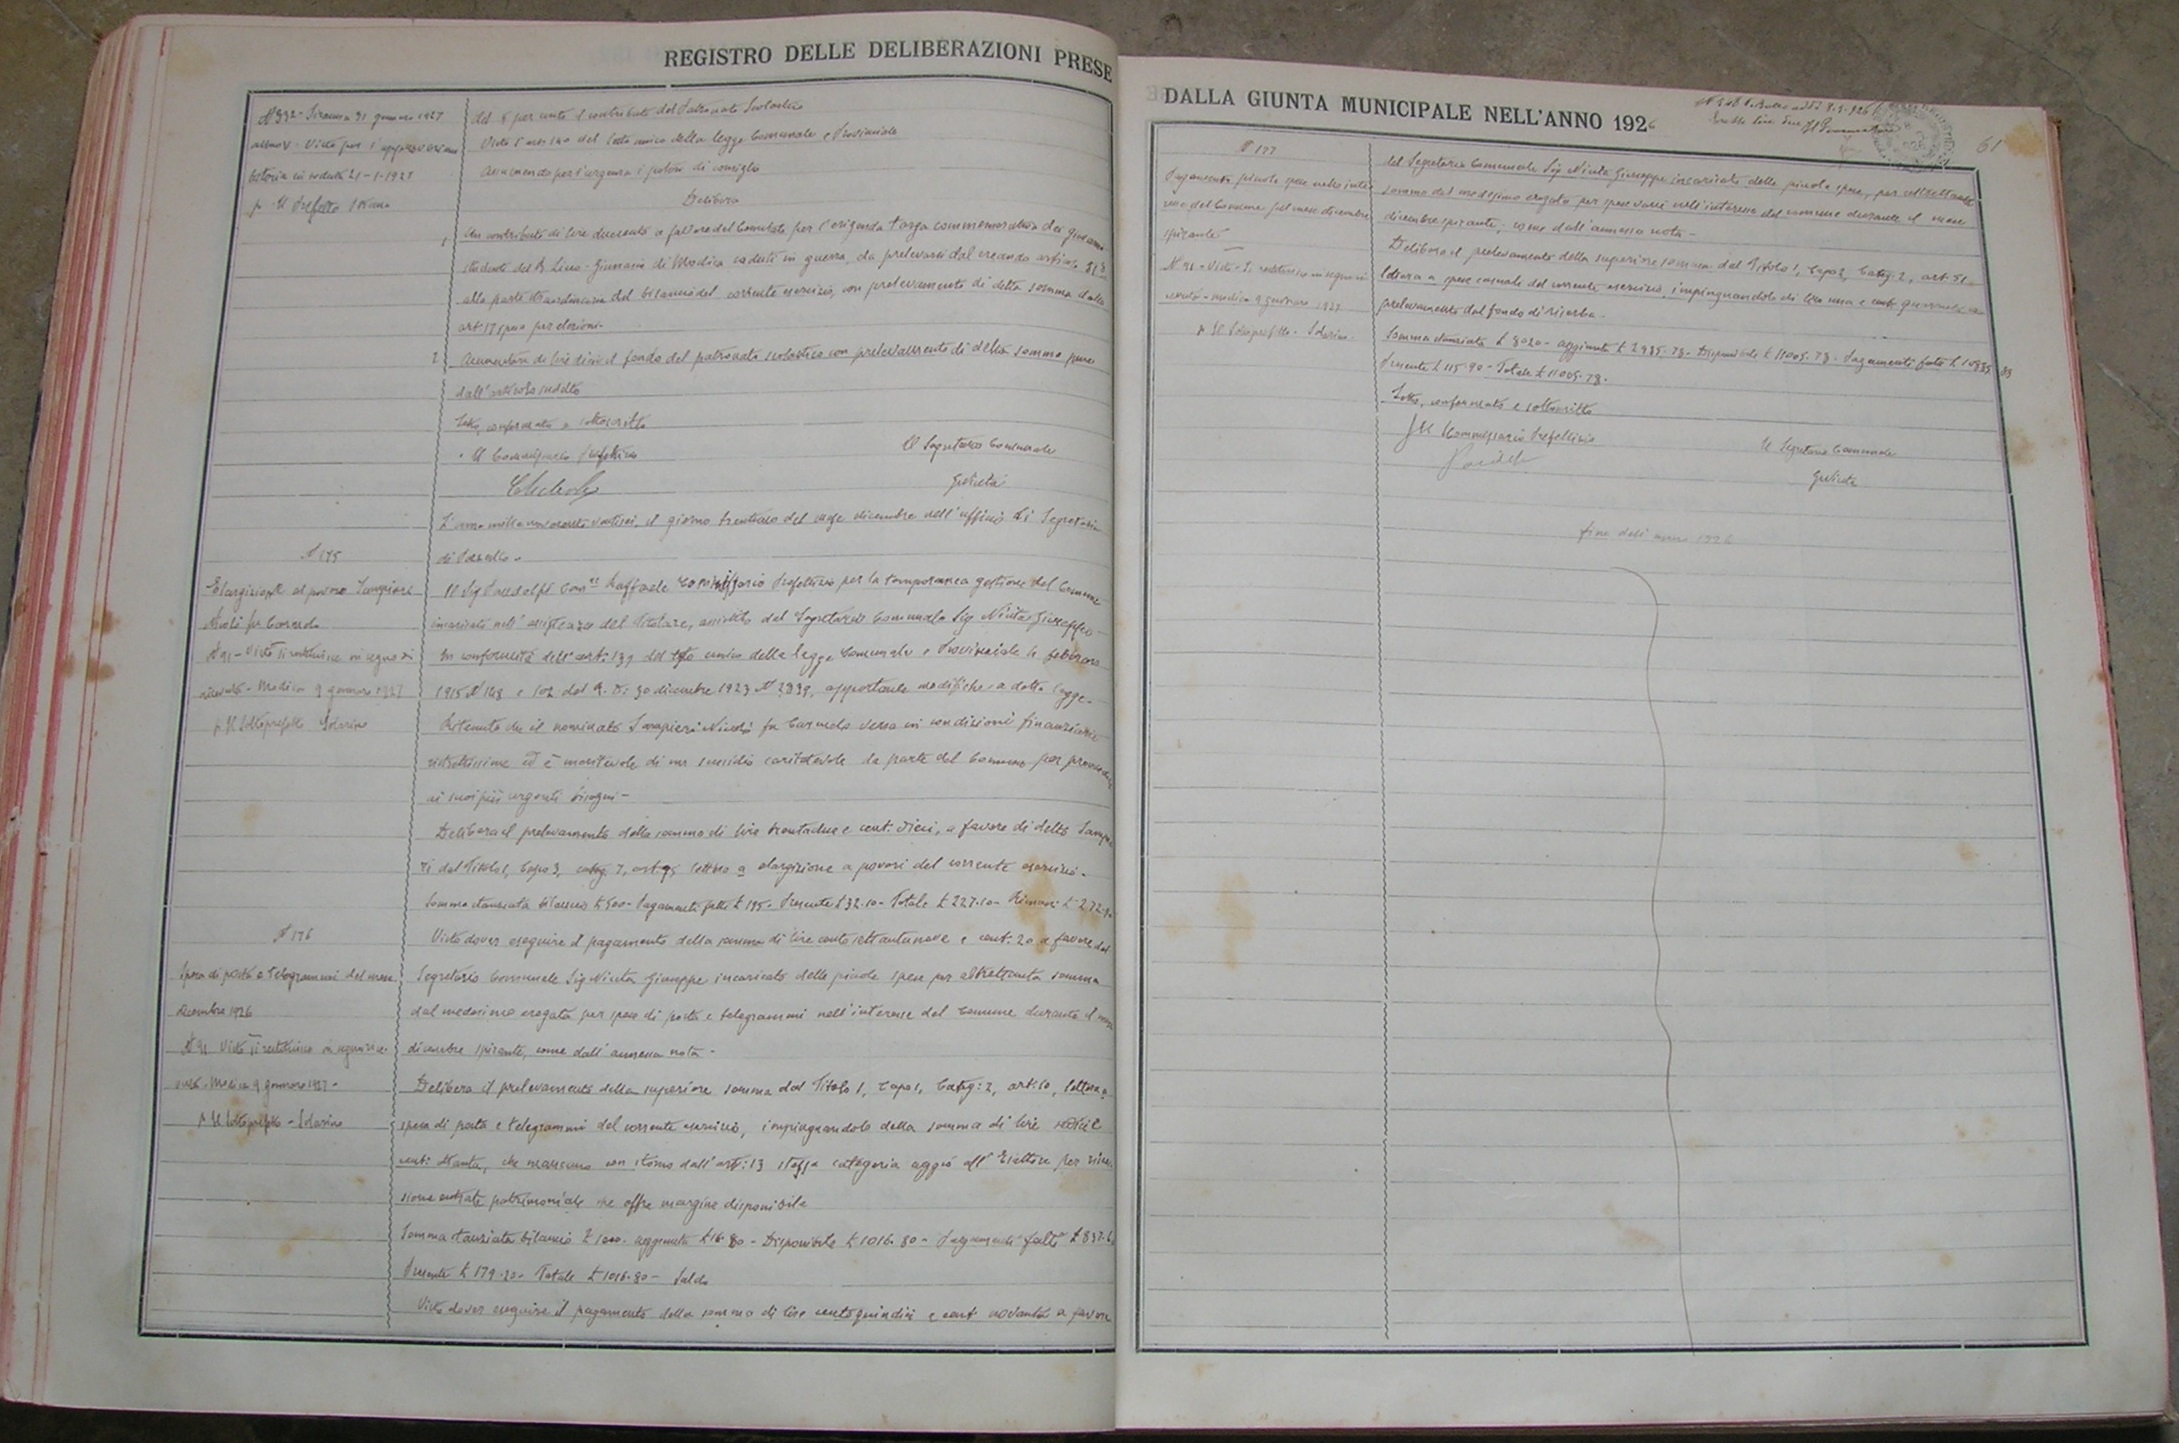 REGISTRO DELLE DELIBERAZIONI PRESE
N 932 - Siracusa 31 gennaio 1927
anno V. Visto per l'approvazione
tutoria in seduta 21-1-1927
p. Il Prefetto
del contributo del Patronato Scolastico
Visto l'art. 140 del testo unico della legge Comunale e Provinciale
Assumendo per l'urgenza i poteri di consiglio
Delibera
1 Un contributo di lire duecento a favore del Comitato per l'erigenda targa commemorativa dei giovani
studenti del R Liceo-Ginnasio di Modica caduti in guerra, da prelevarsi dal creando articolo
alla parte straordinaria del bilancio del corrente esercizio, con prelevamento di detta somma dallo
art 17 spese per elezioni.
2 Aumentare di lire dieci il fondo del patronato scolastico con prelevamento di detta somma pure
dall'articolo suddetto
Letto, confermato e sottoscritto
Il Commissario Prefettizio
Il Segretario Comunale
L'anno mille novecento ventisei, il giorno trentuno del mese dicembre nell'ufficio di Segreteria
N 175
Elargizione al povero
Nicolò fu Carmelo
N 91 - Visto si restituisce in segno di
ricevuto - Modica 9 gennaio 1927
p Il Sottoprefetto Solarino
Il Sig Pandolfi Raffaele Commissario Prefettizio per la temporanea gestione del Comune
incaricato nell'assenza del Titolare, assistito dal Segretario Comunale Sig Giuseppe
In conformità dell'art. 139 del testo unico della legge Comunale e Provinciale 4 febbraio
1915 N 148 e 102 del R. D. 30 dicembre 1923 N 2839, apportante modifiche a detta legge.
Ritenuto che il nominato Nicolò fu Carmelo versa in condizioni finanziarie
ristrettissime ed è meritevole di un sussidio caritatevole da parte del Comune per provvedere
ai suoi più urgenti bisogni -
Delibera il prelevamento della somma di lire trentadue e cent. dieci, a favore di detto
dal Titolo 1, Capo 3, categ. 7, art. 45 lettera a elargizione a poveri del corrente esercizio.
Somma stanziata bilancio £ 500 - Pagamenti fatti £ 195 - Presente £ 32.10 - Totale £ 227.10 - Rimani £ 272.90
N 176
Spesa di posta e telegrammi del mese
dicembre 1926
N 91 Visto si restituisce in segno di rice-
vuto - Modica 9 gennaio 1927 -
p Il Sottoprefetto - Solarino
Visto dover eseguire il pagamento della somma di lire cento settantanove e cent. 20 a favore del
Segretario Comunale Sig Giuseppe incaricato delle piccole spese per altrettanta somma
dal medesimo erogata per spese di posta e telegrammi nell'interesse del Comune durante il mese
dicembre spirante, come dall'annessa nota -
Delibera il prelevamento della superiore somma dal Titolo 1, Capo 1, Categ: 2, art. 10, lettera a
spesa di posta e telegrammi del corrente esercizio, impinguandolo della somma di lire sedici e
cent: ottanta, che mancano con storno dall'art: 13 stessa categoria aggio all'Esattore per riscos-
sione entrate patrimoniale che offre margine disponibile
Somma stanziata bilancio £ 1000 - aggiunta £ 16.80 - Disponibile £ 1016.80 - Pagamenti fatti £ 837.6
Presente £ 179.20 - Totale £ 1016.80 - Saldo
Visto dover eseguire il pagamento della somma di lire centoquindici e cent novanta a favore
DALLA GIUNTA MUNICIPALE NELL'ANNO 1926
61
N 177
Pagamento piccole spese nello inte-
resse del Comune pel mese dicembre
spirante
N 91 - Visto - Si restituisce in segno di
ricevuto - Modica 9 gennaio 1927
p Il Sottoprefetto - Solarino
del Segretario Comunale Sig Giuseppe incaricato delle piccole spese, per altrettanta
somma dal medesimo erogata per spese varie nell'interesse del comune durante il mese
dicembre spirante, come dall'annessa nota -
Delibera il prelevamento della superiore somma dal Titolo 1, Capo 2, Categ. 2, art. 51
lettera a spese casuali del corrente esercizio, impinguandolo di lire una e cent.
prelevamento dal fondo di riserba.
Somma stanziata £ 8020 - aggiunta £ 2985.73 - Disponibile £ 11005.73 - Pagamenti fatti £ 10889.83
Presente £ 115.90 - Totale £ 11005.73.
Letto, confermato e sottoscritto
Il Commissario Prefettizio
Il Segretario Comunale
fine dell'anno 1926